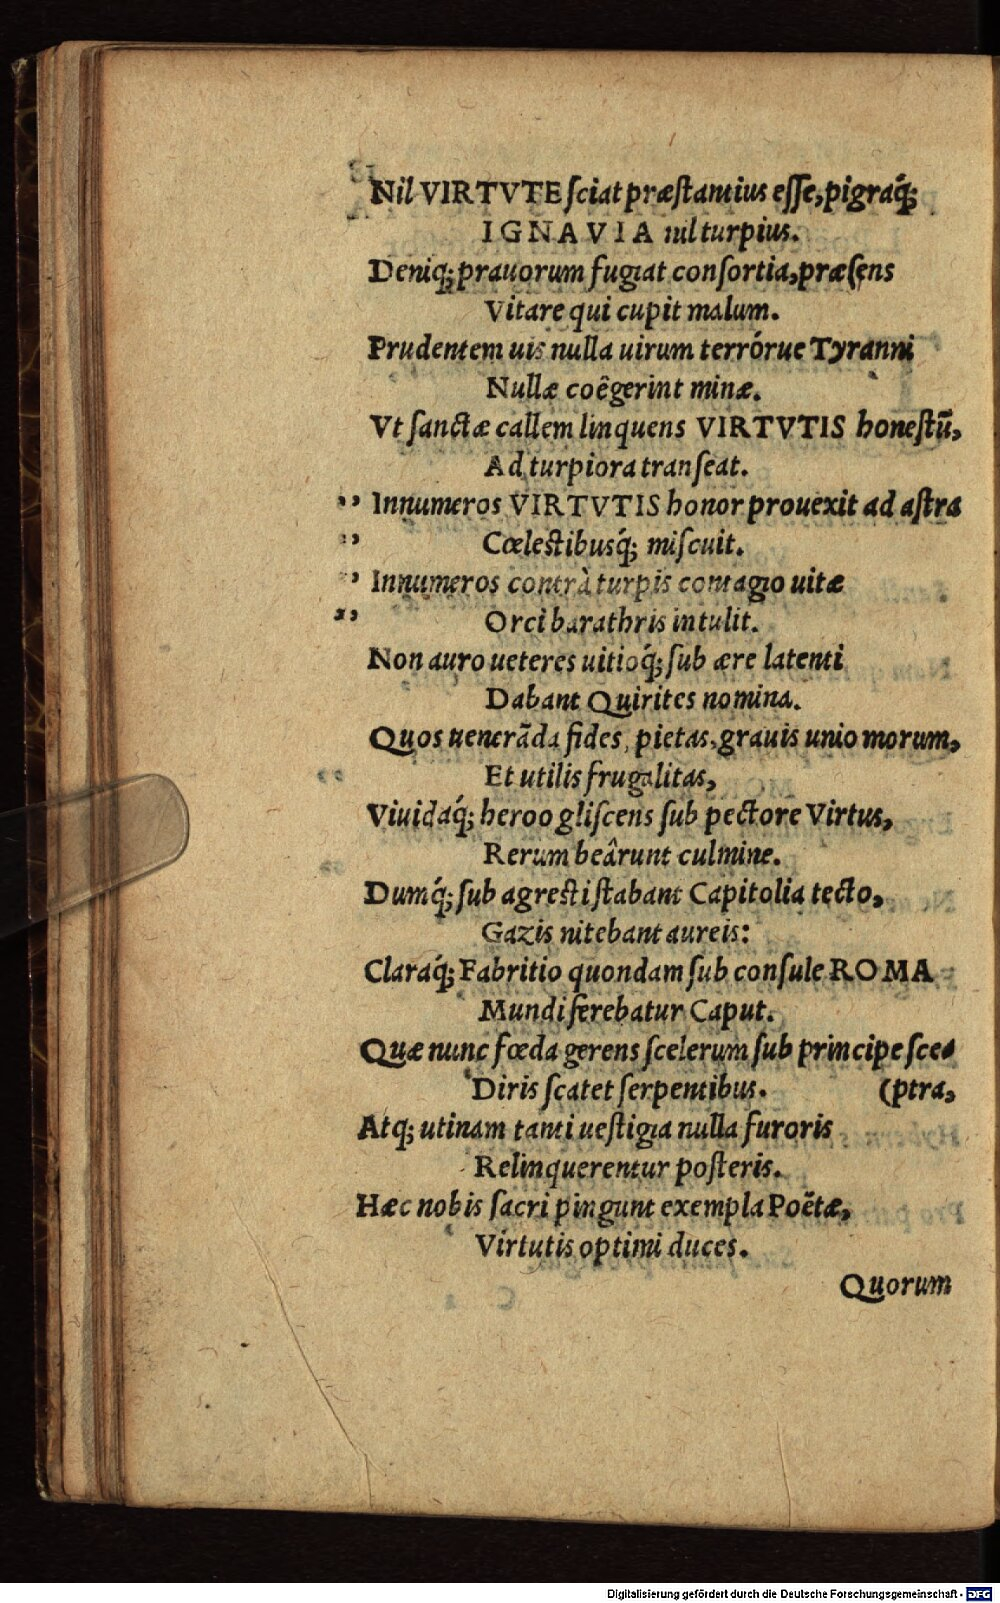 Nil VIRTVTE sciat præstantius esse, pigraq́;
IGNAVIA nil turpius.
Deniq; prauorum fugiat consortia, præsens
Vitare qui cupit malum.
Prudentem uis nulla uirum terrórue Tyranni
Nullæ coêgerint minæ.
Vt sanctæ callem linquens VIRTVTIS honestū,
Ad turpiora transeat.
,, Innumeros VIRTVTIS honor prouexit ad astra
,, Cœlestibusq́; miscuit.
,, Innumeros contrà turpis contagio uitæ
,, Orci barathris intulit.
Non auro ueteres uitioq́; sub ære latenti
Dabant Quirites nomina.
Quos uenerāda fides, pietas, grauis unio morum,
Et utilis frugalitas,
Viuidaq́; heroo gliscens sub pectore Virtus,
Rerum beârunt culmine.
Dumq́; sub agresti stabant Capitolia tecto,
Gazis nitebant aureis:
Claraq́; Fabritio quondam sub consule ROMA
Mundi ferebatur Caput.
Quæ nunc fœda gerens scelerum sub principe sce-
Diris scatet serpentibus. (ptra,
Atq; utinam tanti uestigia nulla furoris
Relinquerentur posteris.
Hæc nobis sacri pingunt exempla Poëtæ,
Virtutis optimi duces.
Quorum
Digitalisierung gefördert durch die Deutsche Forschungsgemeinschaft - DFG